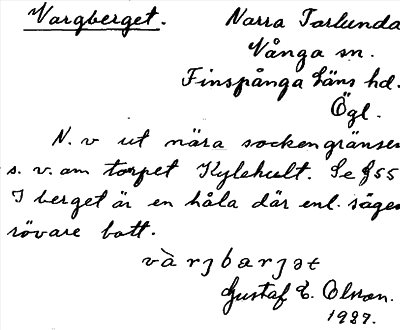 Vargberget. Norra Torlunda
Vånga sn.
Finspånga läns hd.
Ögl.
N. v ut nära sockengränsen
s. v. om torpet Kylehult. Se § 55
I berget är en håla där enl. sägen
rövare bott.
và r j b æ r j ə t
Gustaf E. Olsson.
1927.